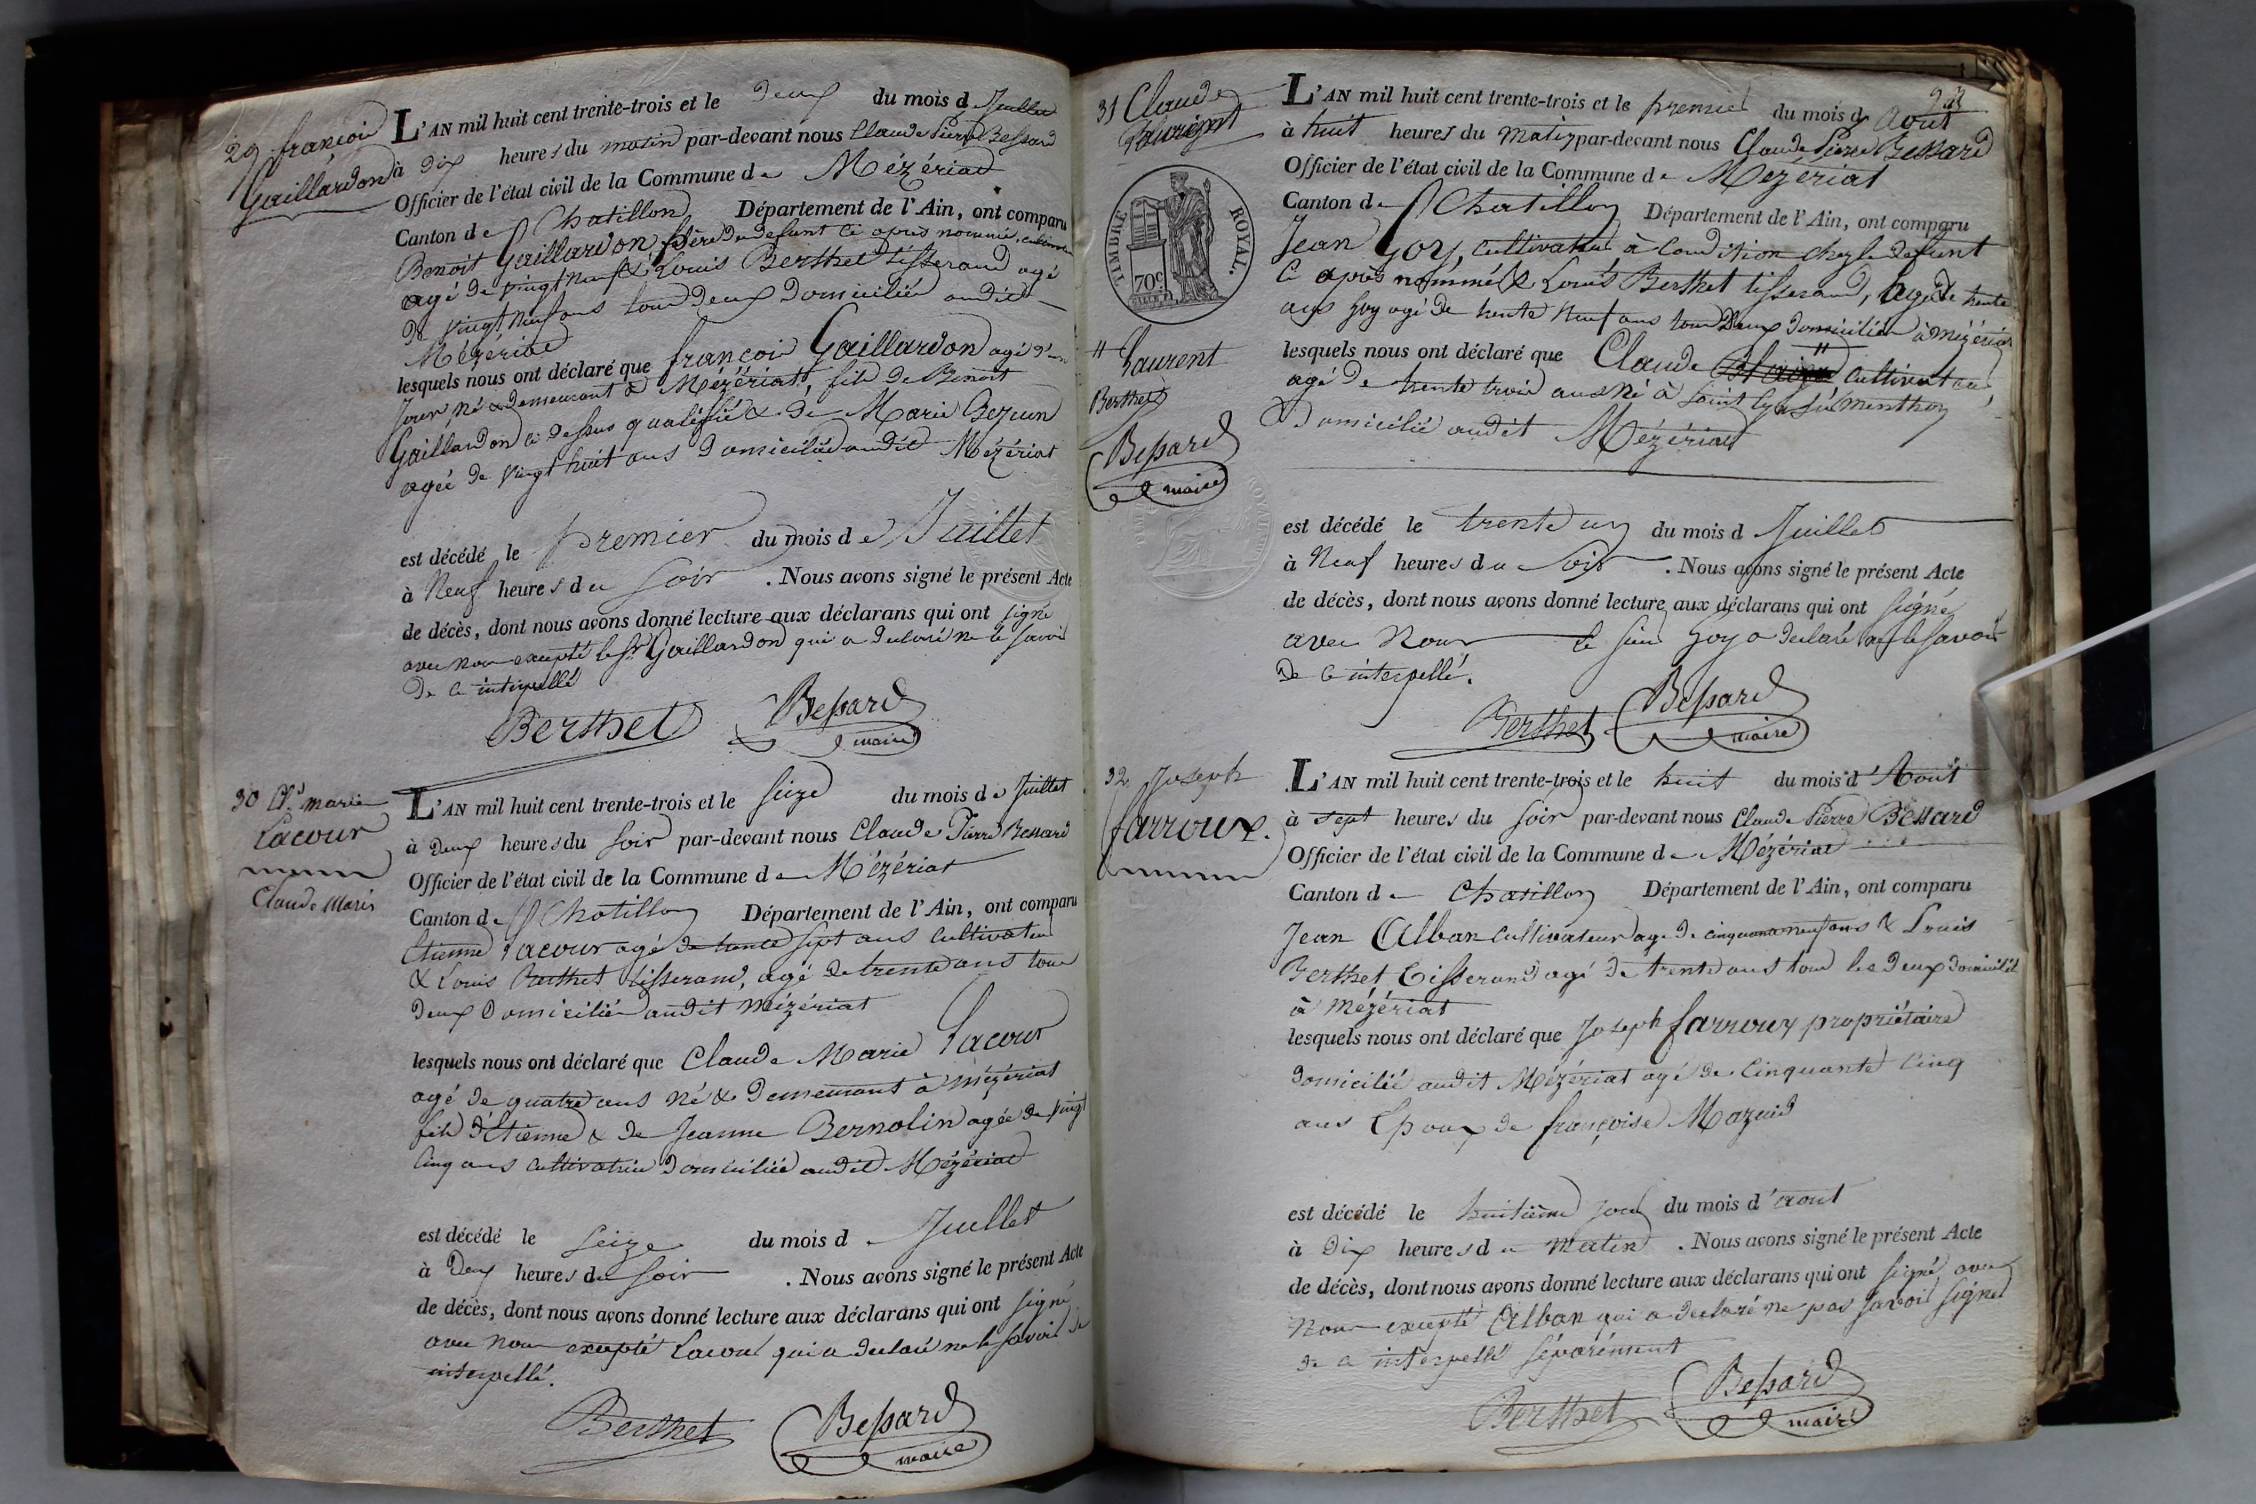 29 françois
Gaillardon
L'AN mil huit cent trente-trois et le deux du mois de Juillet
à dix heures du matin par-devant nous Claude Pierre Bessard
Officier de l'état civil de la Commune de Mézériat
Canton de Chatillon Département de l'Ain, ont comparu
Benoit Gaillardon, père du defunt ci après nommé, cultivateur
agé de vingt neuf & Louis Berthet tisserand agé
de vingt neuf ans tous deux domiciliés audit
Mézériat
lesquels nous ont déclaré que françois Gaillardon agé d'un
Jour, né & demeurant à Mézériat, fils de Benoit
Gaillardon ci dessus qualifié & de Marie
agée de vingt huit ans domiciliée audit Mézériat
est décédé le premier du mois de Juillet
à Neuf heures du soir . Nous avons signé le présent Acte
de décès, dont nous avons donné lecture aux déclarans qui ont signé
avec nous excepté le Sr Gaillardon qui a declaré ne le savoir
de ce interpellé
Berthet Bessard
maire
30 Cl. marie
Lacour
Claude Marie
L'AN mil huit cent trente-trois et le seize du mois de Juillet
à deux heures du soir par-devant nous Claude Pierre Bessard
Officier de l'état civil de la Commune de Mézériat
Canton de Chatillon Département de l'Ain, ont comparu
Etienne Lacour agé de trente sept ans cultivateur
& Louis Berthet tisserand, agé de trente ans tous
deux domiciliés audit Mézériat
lesquels nous ont déclaré que Claude Marie Lacour
agé de quatre ans né & demeurant à Mézériat
fils d'Etienne & de Jeanne Bernolin agée de vingt
cinq ans cultivatrice domiciliée audit Mézériat
est décédé le seize du mois de Juillet
à Deux heures du soir . Nous avons signé le présent Acte
de décès, dont nous avons donné lecture aux déclarans qui ont signé
avec nous excepté Lacour qui a declaré ne le savoir de
interpellé.
Berthet Bessard
maire
31 Claude
Laurent
TIMBRE ROYAL.
70c
" Laurent
Berthet
Bessard
maire
L'AN mil huit cent trente-trois et le premier du mois d'Aout
à huit heures du matin par-devant nous Claude Pierre Bessard
Officier de l'état civil de la Commune de Mézériat
Canton de Chatillon Département de l'Ain, ont comparu
Jean Goy, cultivateur à condition chez le defunt
ci après nommé & Louis Berthet tisserand, agé de trente
ans Goy agé de trente neuf ans tous deux domiciliés à mézériat
lesquels nous ont déclaré que Claude " cultivateur,
agé de trente trois ans né à Saint Cyr sur menthon
& domicilié audit Mézériat
est décédé le trente un du mois d Juillet
à Neuf heures du Soir . Nous avons signé le présent Acte
de décès, dont nous avons donné lecture aux déclarans qui ont signé
avec Nous le sieur Goy a declaré ne le savoir
de ce interpellé.
Berthet Bessard
maire
32 Joseph
farroux.
L'AN mil huit cent trente-trois et le huit du mois d'Aout
à sept heures du soir par-devant nous Claude Pierre Bessard
Officier de l'état civil de la Commune de Mézériat
Canton de Chatillon Département de l'Ain, ont comparu
Jean Alban cultivateur agé de cinquante neuf ans & Louis
Berthet Tisserand agé de trente ans tous les deux domiciliés
à Mézériat
lesquels nous ont déclaré que Joseph farroux propriétaire
domicilié audit Mézériat agé de cinquante cinq
ans Epoux de françoise Mazuid
est décédé le huitième jour du mois d'aout
à Dix heures du Matin . Nous avons signé le présent Acte
de décès, dont nous avons donné lecture aux déclarans qui ont signé avec
Nous excepté Alban qui a declaré ne pas savoir signer
de ce interpellé séparément
Berthet Bessard
maire